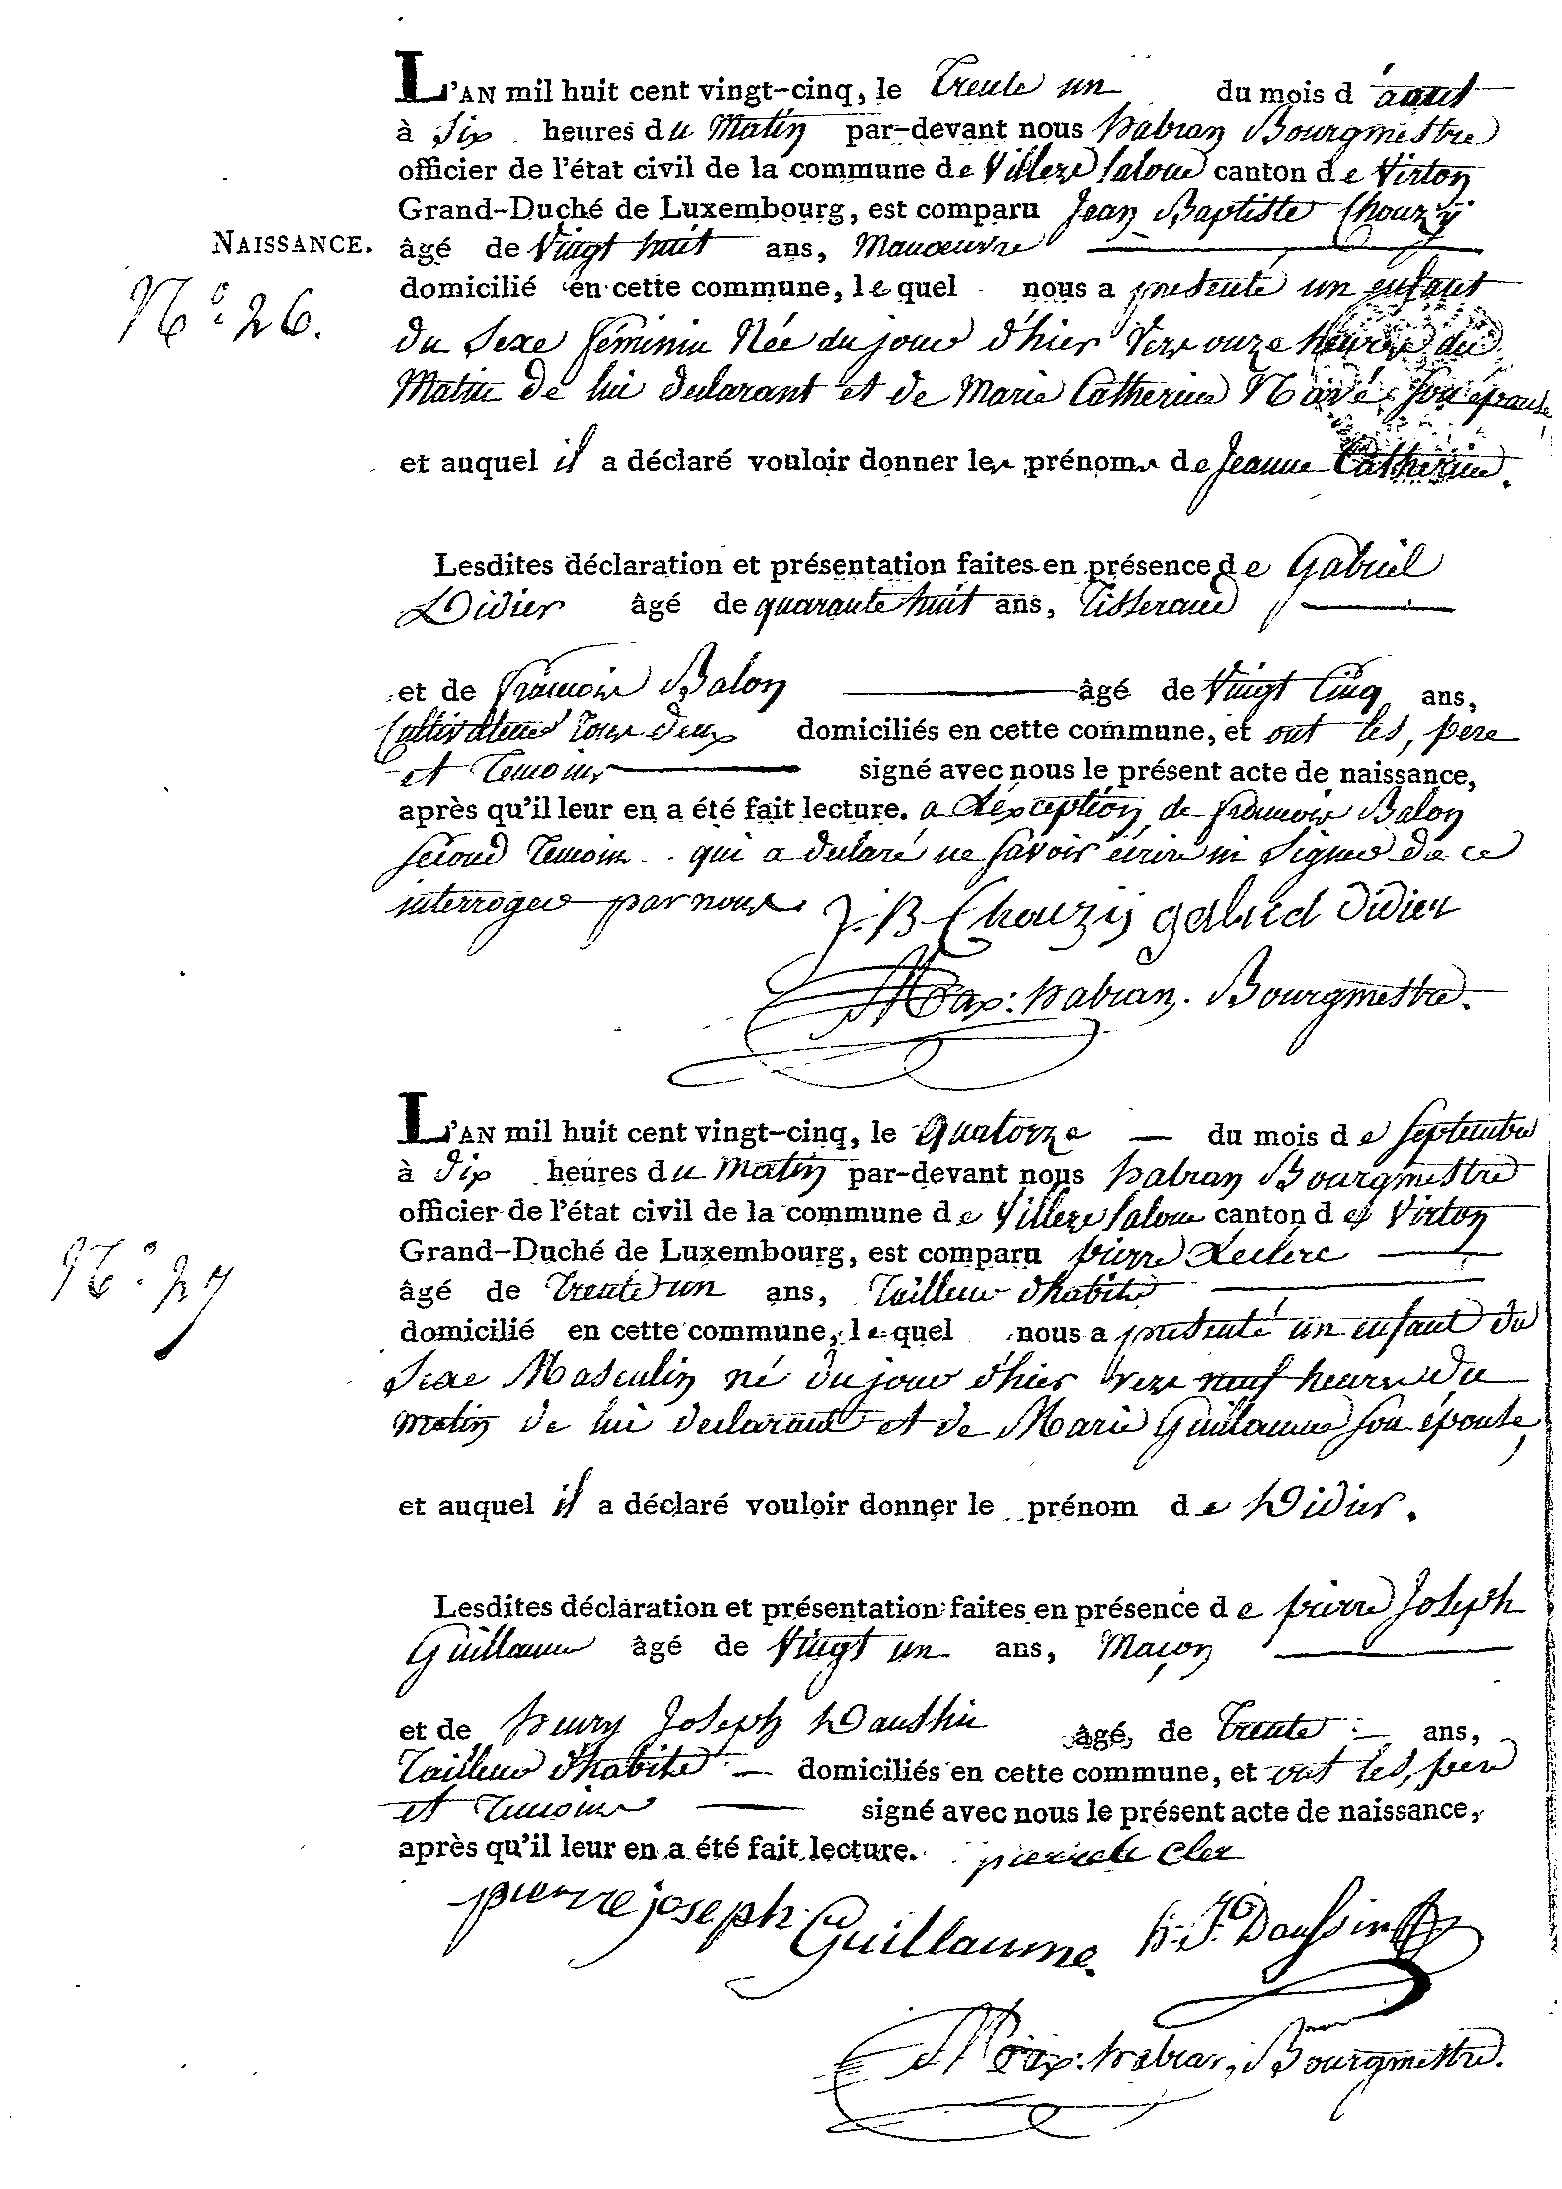 L'AN mil huit cent vingt-cinq, le Trente un du mois d'août
à Dix heures du Matin par-devant nous habran Bourgmestre
officier de l'état civil de la commune de Villers la loue canton de Virton
Grand-Duché de Luxembourg, est comparu Jean Baptiste Chouzy
NAISSANCE. âgé de Vingt huit ans, Manœuvre
N° 26.
domicilié en cette commune, lequel nous a présenté un enfant
du Sexe féminin Née du jour d'hier Vers onze heures du
Matin de lui declarant et de Marie Catherine Navé son épouse
et auquel il a déclaré vouloir donner les prénoms de Jeanne Catherine.
Lesdites déclaration et présentation faites en présence de Gabriel
Didier âgé de quarante huit ans, Tisserand
et de françois Balon âgé de Vingt Cinq ans,
Cultivateur Tous deux domiciliés en cette commune, et ont les, père
et Temoins signé avec nous le présent acte de naissance,
après qu'il leur en a été fait lecture. a L'éxception de françois Balon
second Temoin qui a declaré ne savoir écrire ni signer de ce
interroger par nous. J. B Chouzy gabriel Didier
Max: habran. Bourgmestre.
L'AN mil huit cent vingt-cinq, le Quatorze du mois de septembre
à Dix heures du Matin par-devant nous habran Bourgmestre
officier de l'état civil de la commune de Villers la loue canton de Virton
N° 27
Grand-Duché de Luxembourg, est comparu pierre Leclerc
âgé de Trente un ans, Tailleur d'habits
domicilié en cette commune, lequel nous a présenté un enfant du
Sexe Masculin né du jour d'hier Vers neuf heures du
matin de lui declarant et de Marie Guillaume son épouse,
et auquel il a déclaré vouloir donner le prénom de Didier.
Lesdites déclaration et présentation faites en présence de pierre Joseph
Guillaume âgé de Vingt un ans, Maçon
et de henry Joseph Dausin âgé de Trente ans,
Tailleur d'habits domiciliés en cette commune, et ont les, père
et Temoins signé avec nous le présent acte de naissance,
après qu'il leur en a été fait lecture. pierre le Cler
pierre joseph Guillaume. h. J. Daussin
Max: habran, Bourgmestre.